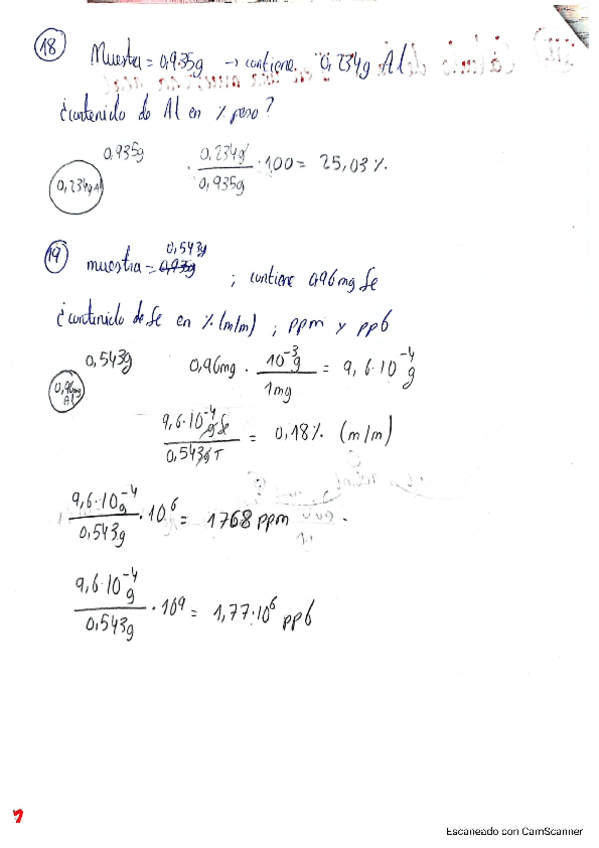 18 Muestra = 0,935g → contiene 0,234g Al
¿contenido de Al en % peso?
0,935g
0,234g Al
0,234g / 0,935g · 100 = 25,03 %.
0,543g
19 muestra = 0,93g ; contiene 0,96mg Fe
¿contenido de Fe en % (m/m) ; ppm y ppb
0,543g
0,96mg Al
0,96mg · 10⁻³g / 1mg = 9,6·10⁻⁴ g
9,6·10⁻⁴ g Fe / 0,543g T = 0,18% (m/m)
9,6·10⁻⁴ g / 0,543g · 10⁶ = 1768 ppm
9,6·10⁻⁴ g / 0,543g · 10⁹ = 1,77·10⁶ ppb
7
Escaneado con CamScanner